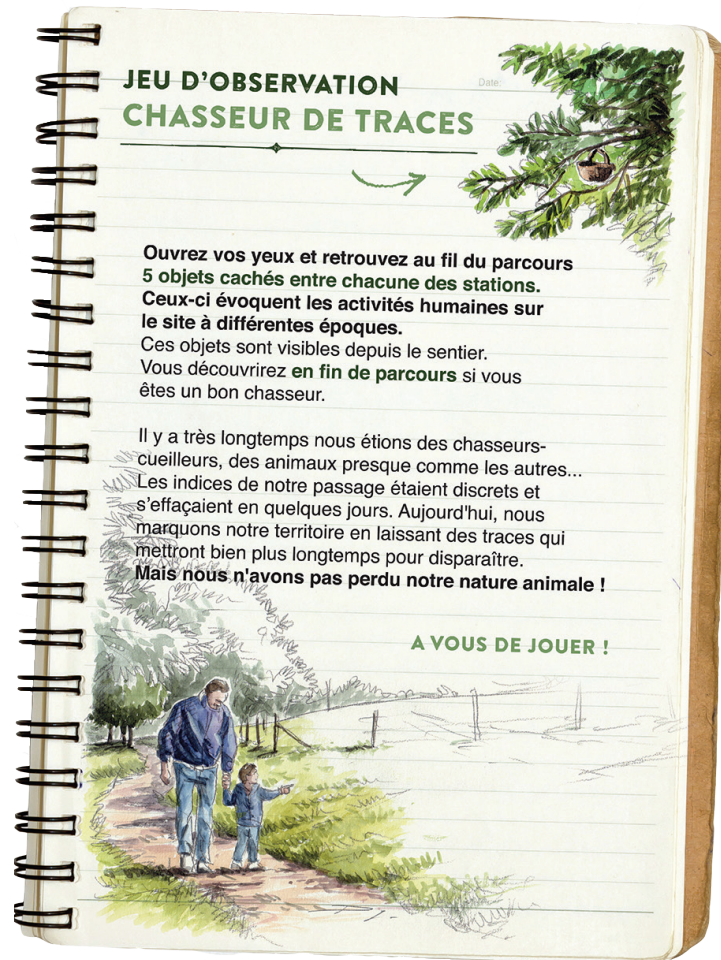 JEU D'OBSERVATION
Date:
CHASSEUR DE TRACES
Ouvrez vos yeux et retrouvez au fil du parcours
5 objets cachés entre chacune des stations.
Ceux-ci évoquent les activités humaines sur
le site à différentes époques.
Ces objets sont visibles depuis le sentier.
Vous découvrirez en fin de parcours si vous
êtes un bon chasseur.
Il y a très longtemps nous étions des chasseurs-
cueilleurs, des animaux presque comme les autres...
Les indices de notre passage étaient discrets et
s'effaçaient en quelques jours. Aujourd'hui, nous
marquons notre territoire en laissant des traces qui
mettront bien plus longtemps pour disparaître.
Mais nous n'avons pas perdu notre nature animale !
A VOUS DE JOUER !